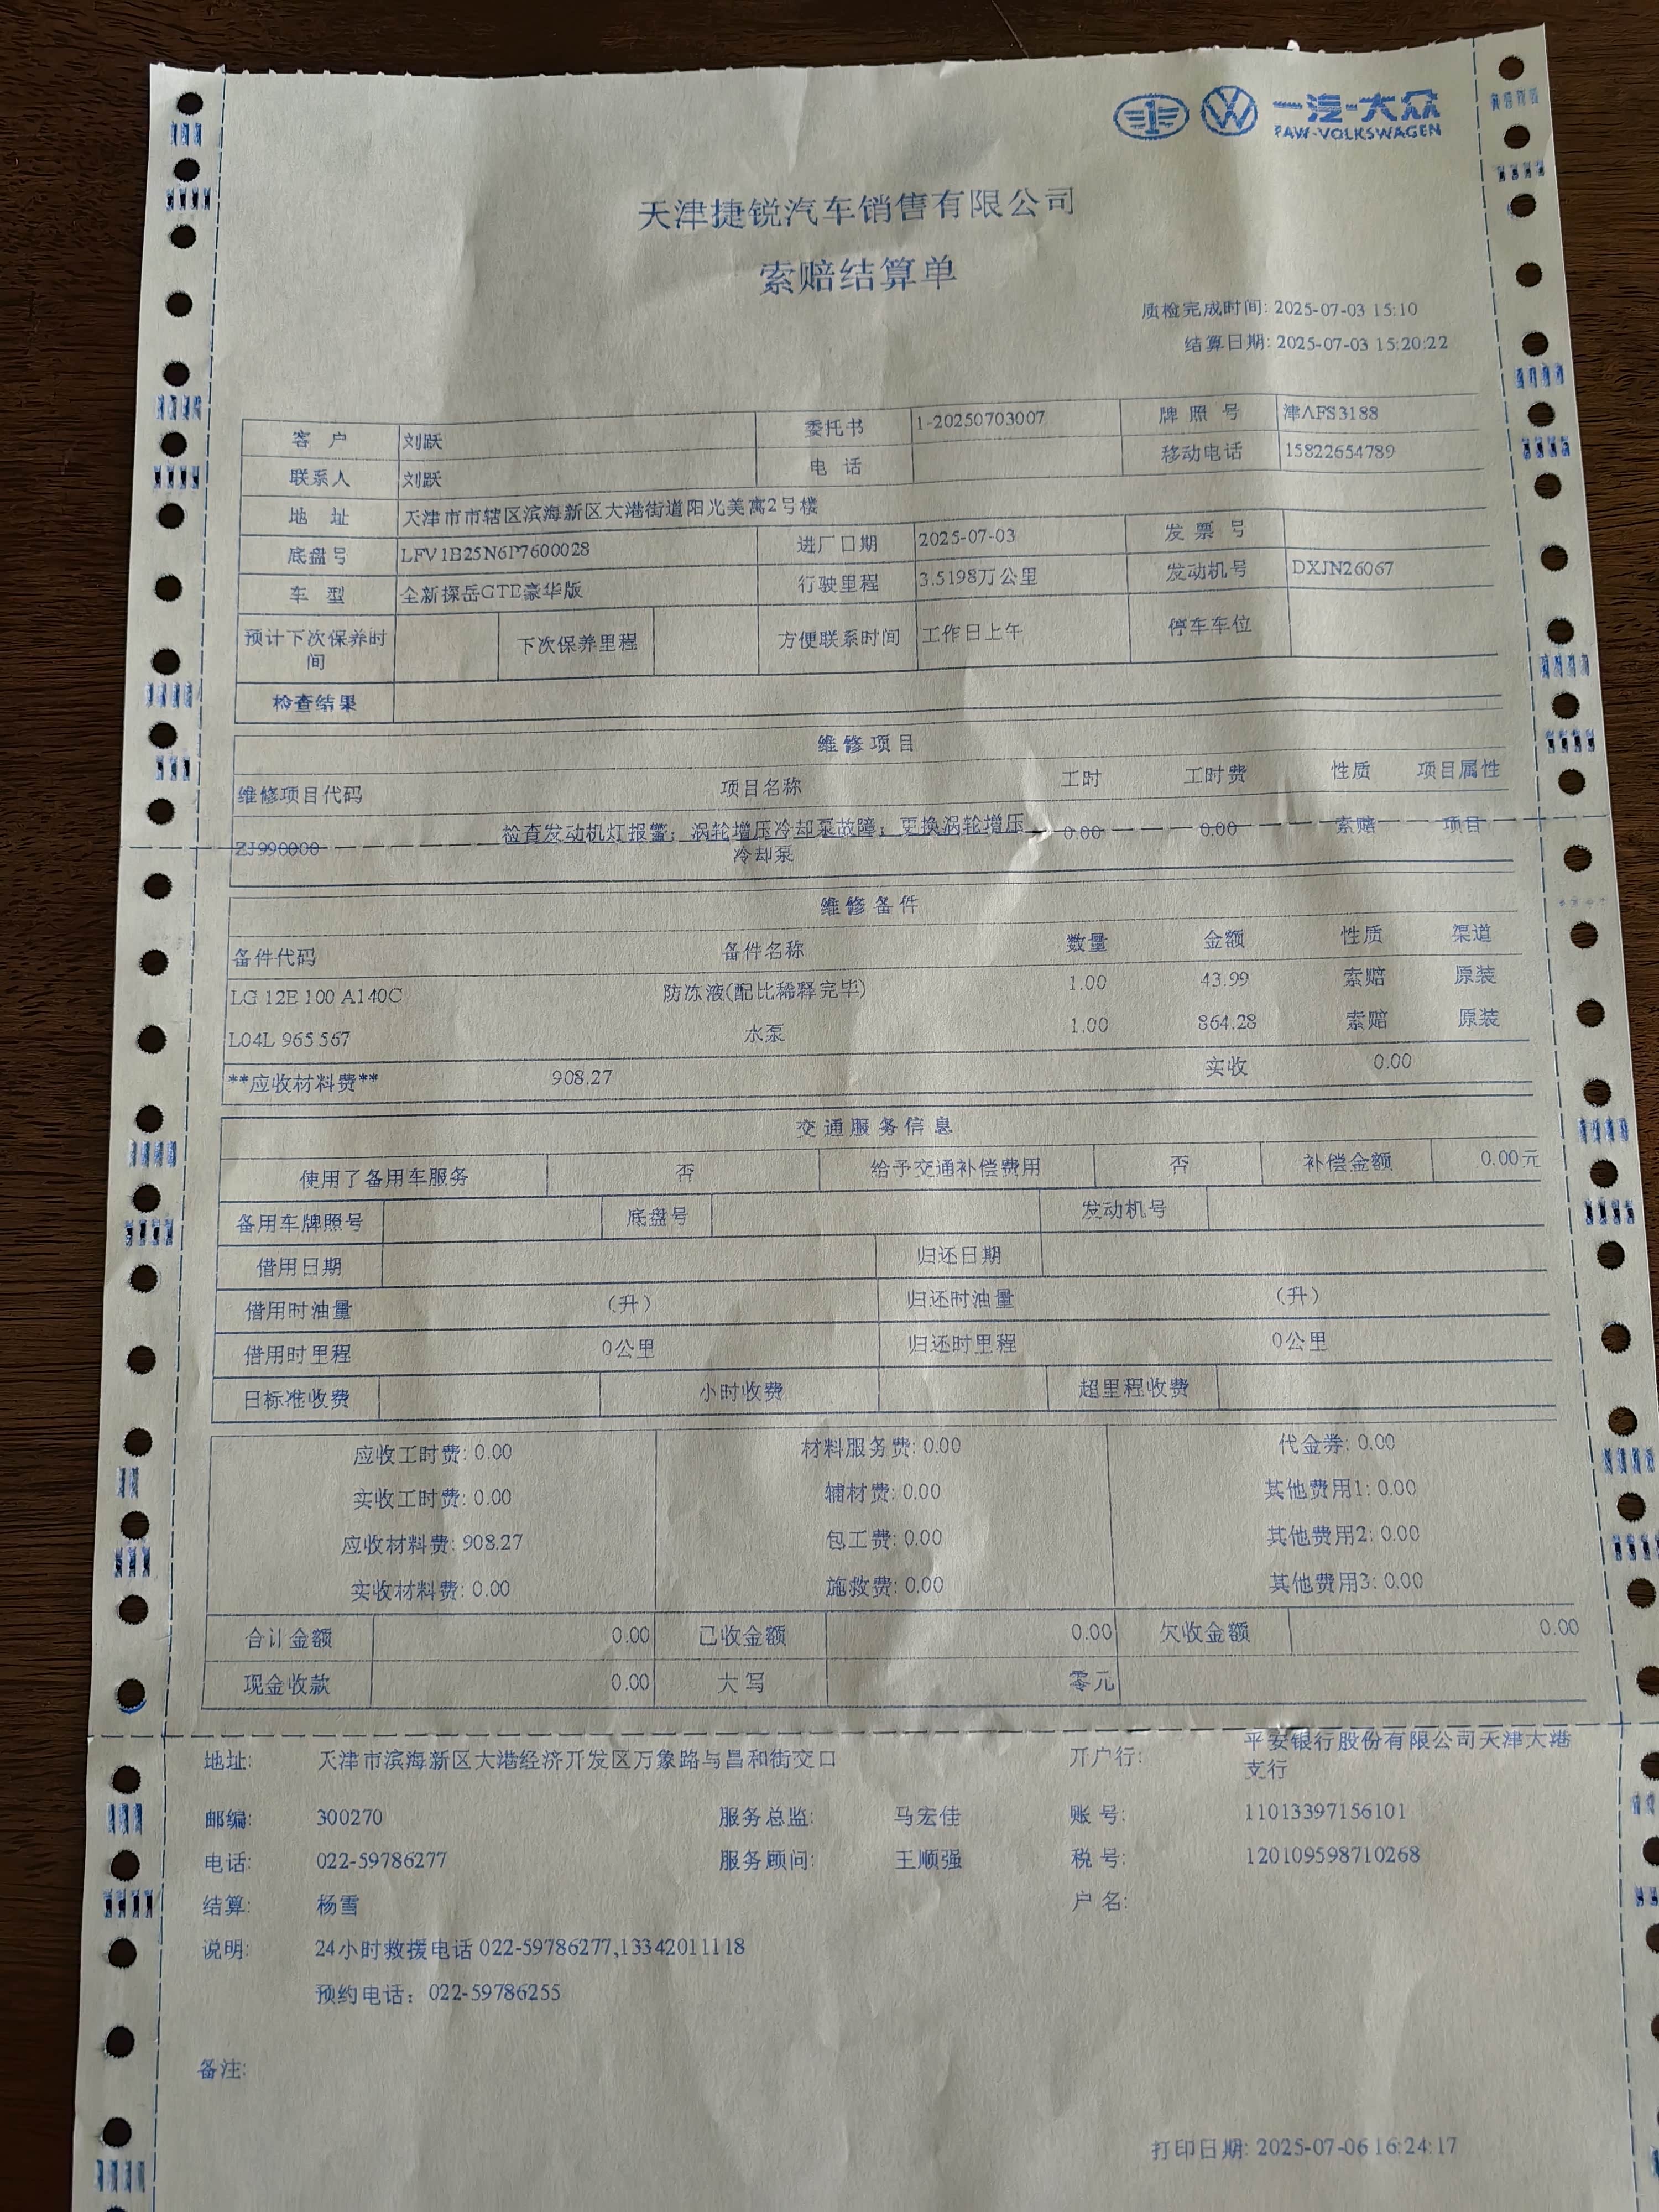 一汽-大众
FAW-VOLKSWAGEN
天津捷锐汽车销售有限公司
索赔结算单
质检完成时间: 2025-07-03 15:10
结算日期: 2025-07-03 15:20:22
客 户 刘跃 委托书 1-20250703007 牌 照 号 津AFS3188
联系人 刘跃 电 话 移动电话 15822654789
地 址 天津市市辖区滨海新区大港街道阳光美寓2号楼
底盘号 LFV1B25N6P7600028 进厂日期 2025-07-03 发 票 号
车 型 全新探岳GTE豪华版 行驶里程 3.5198万公里 发动机号 DXJN26067
预计下次保养时间 下次保养里程 方便联系时间 工作日上午 停车车位
检查结果
维修项目
维修项目代码 项目名称 工时 工时费 性质 项目属性
ZJ990000 检查发动机灯报警；涡轮增压冷却泵故障；更换涡轮增压 0.00 0.00 索赔 项目
冷却泵
维修备件
备件代码 备件名称 数量 金额 性质 渠道
LG 12E 100 A140C 防冻液(配比稀释完毕) 1.00 43.99 索赔 原装
L04L 965 567 水泵 1.00 864.28 索赔 原装
**应收材料费** 908.27 实收 0.00
交通服务信息
使用了备用车服务 否 给予交通补偿费用 否 补偿金额 0.00元
备用车牌照号 底盘号 发动机号
借用日期 归还日期
借用时油量 （升） 归还时油量 （升）
借用时里程 0公里 归还时里程 0公里
日标准收费 小时收费 超里程收费
应收工时费: 0.00 材料服务费: 0.00 代金券: 0.00
实收工时费: 0.00 辅材费: 0.00 其他费用1: 0.00
应收材料费: 908.27 包工费: 0.00 其他费用2: 0.00
实收材料费: 0.00 施救费: 0.00 其他费用3: 0.00
合计金额 0.00 已收金额 0.00 欠收金额 0.00
现金收款 0.00 大写 零元
地址: 天津市滨海新区大港经济开发区万象路与昌和街交口 开户行: 平安银行股份有限公司天津大港
支行
邮编: 300270 服务总监: 马宏佳 账 号: 11013397156101
电话: 022-59786277 服务顾问: 王顺强 税 号: 120109598710268
结算: 杨雪 户 名:
说明: 24小时救援电话 022-59786277,13342011118
预约电话：022-59786255
备注:
打印日期: 2025-07-06 16:24:17